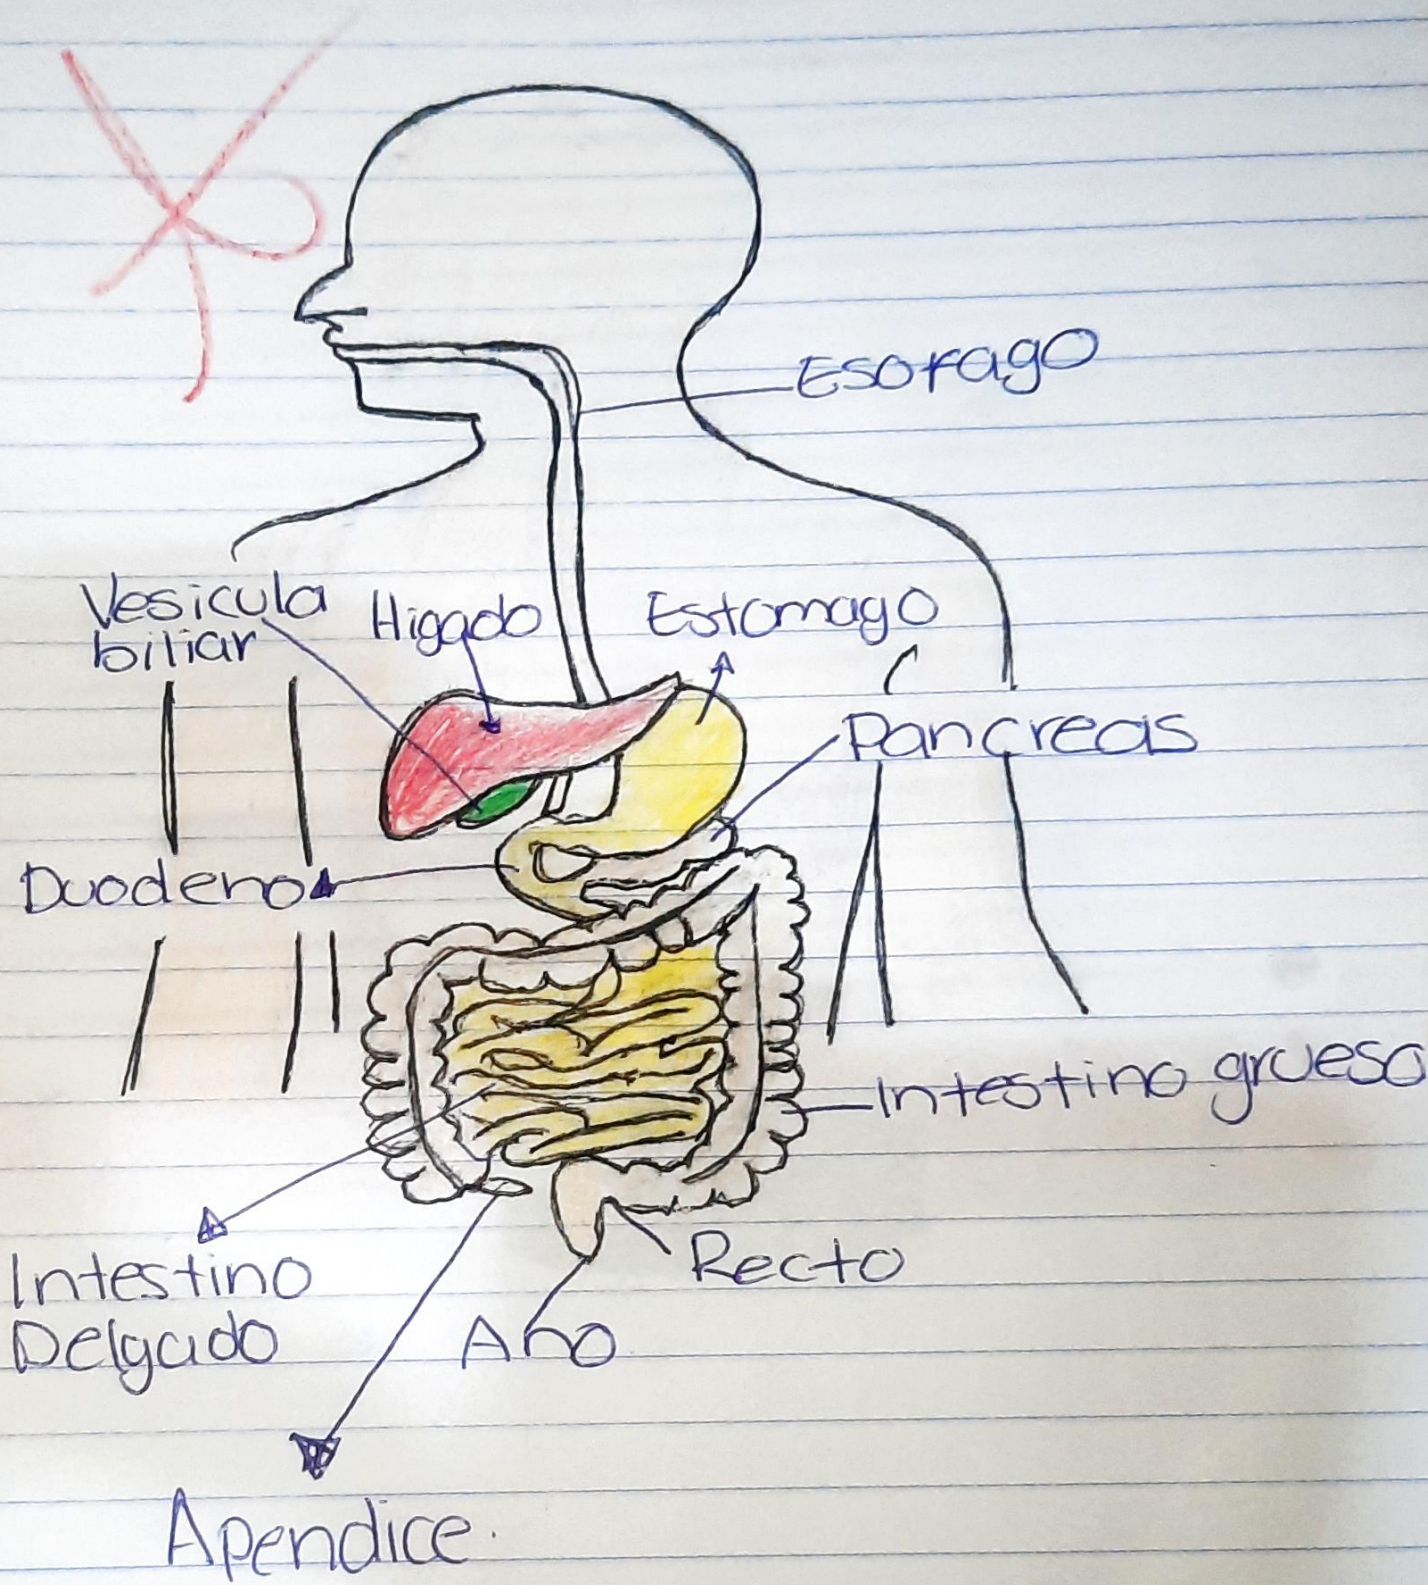 Esofago
Vesicula
biliar
Higado
Estomago
Pancreas
Duodeno
Intestino grueso
Intestino
Delgado
Recto
Ano
Apendice.